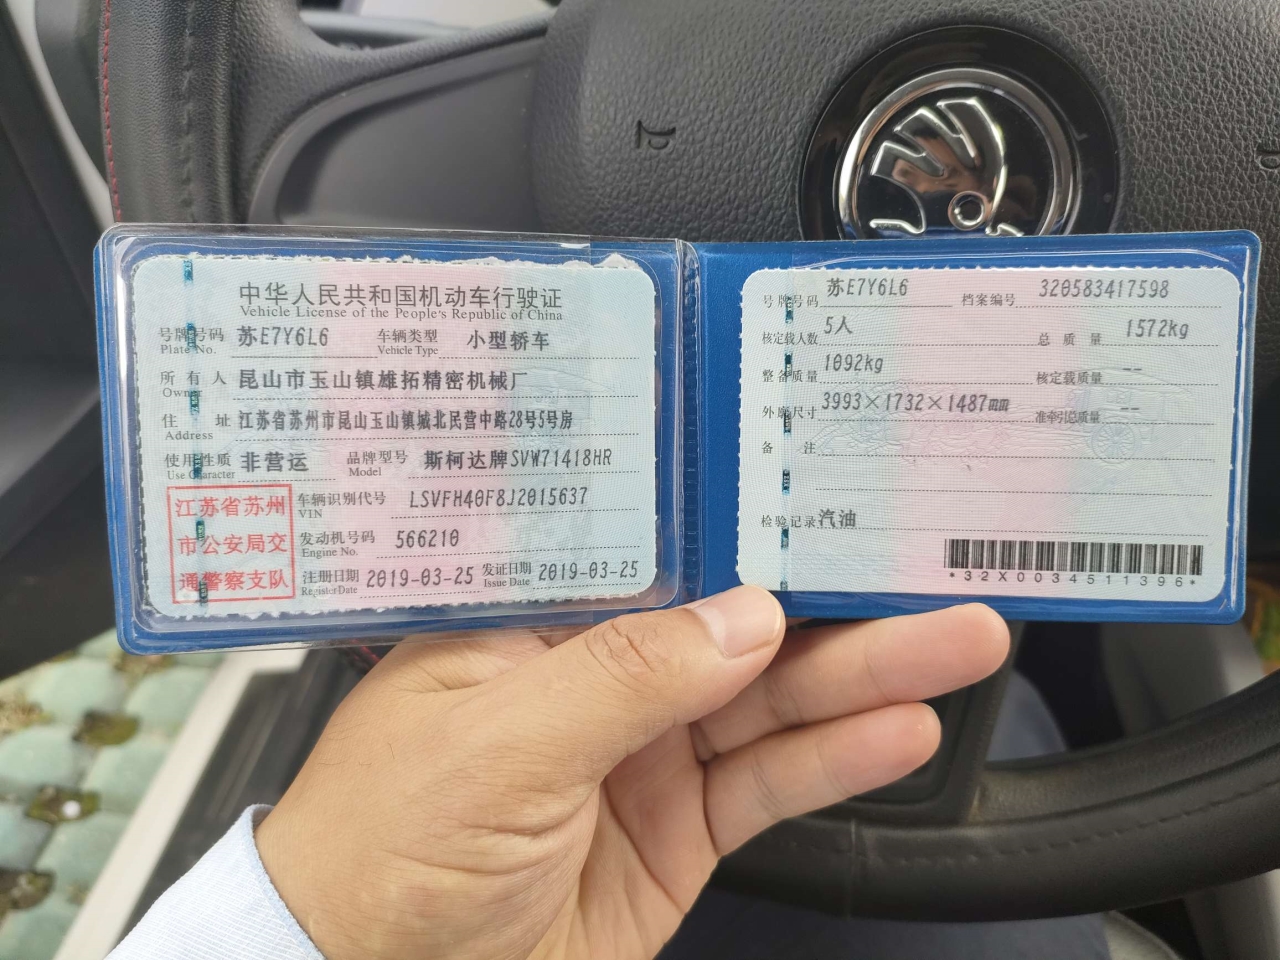 中华人民共和国机动车行驶证
Vehicle License of the People's Republic of China
号牌号码 苏E7Y6L6 车辆类型 小型轿车
Plate No. Vehicle Type
所有人 昆山市玉山镇雄拓精密机械厂
Owner
住址 江苏省苏州市昆山玉山镇城北民营中路28号5号房
Address
使用性质 非营运 品牌型号 斯柯达牌SVW71418HR
Use Character Model
江苏省苏州
市公安局交
通警察支队
车辆识别代号 LSVFH40F8J2015637
VIN
发动机号码 566210
Engine No.
注册日期 2019-03-25 发证日期 2019-03-25
Register Date Issue Date
号牌号码 苏E7Y6L6 档案编号 320583417598
核定载人数 5人 总质量 1572kg
整备质量 1092kg 核定载质量 --
外廓尺寸 3993×1732×1487mm 准牵引总质量 --
备注
检验记录 汽油
*32X0034511396*